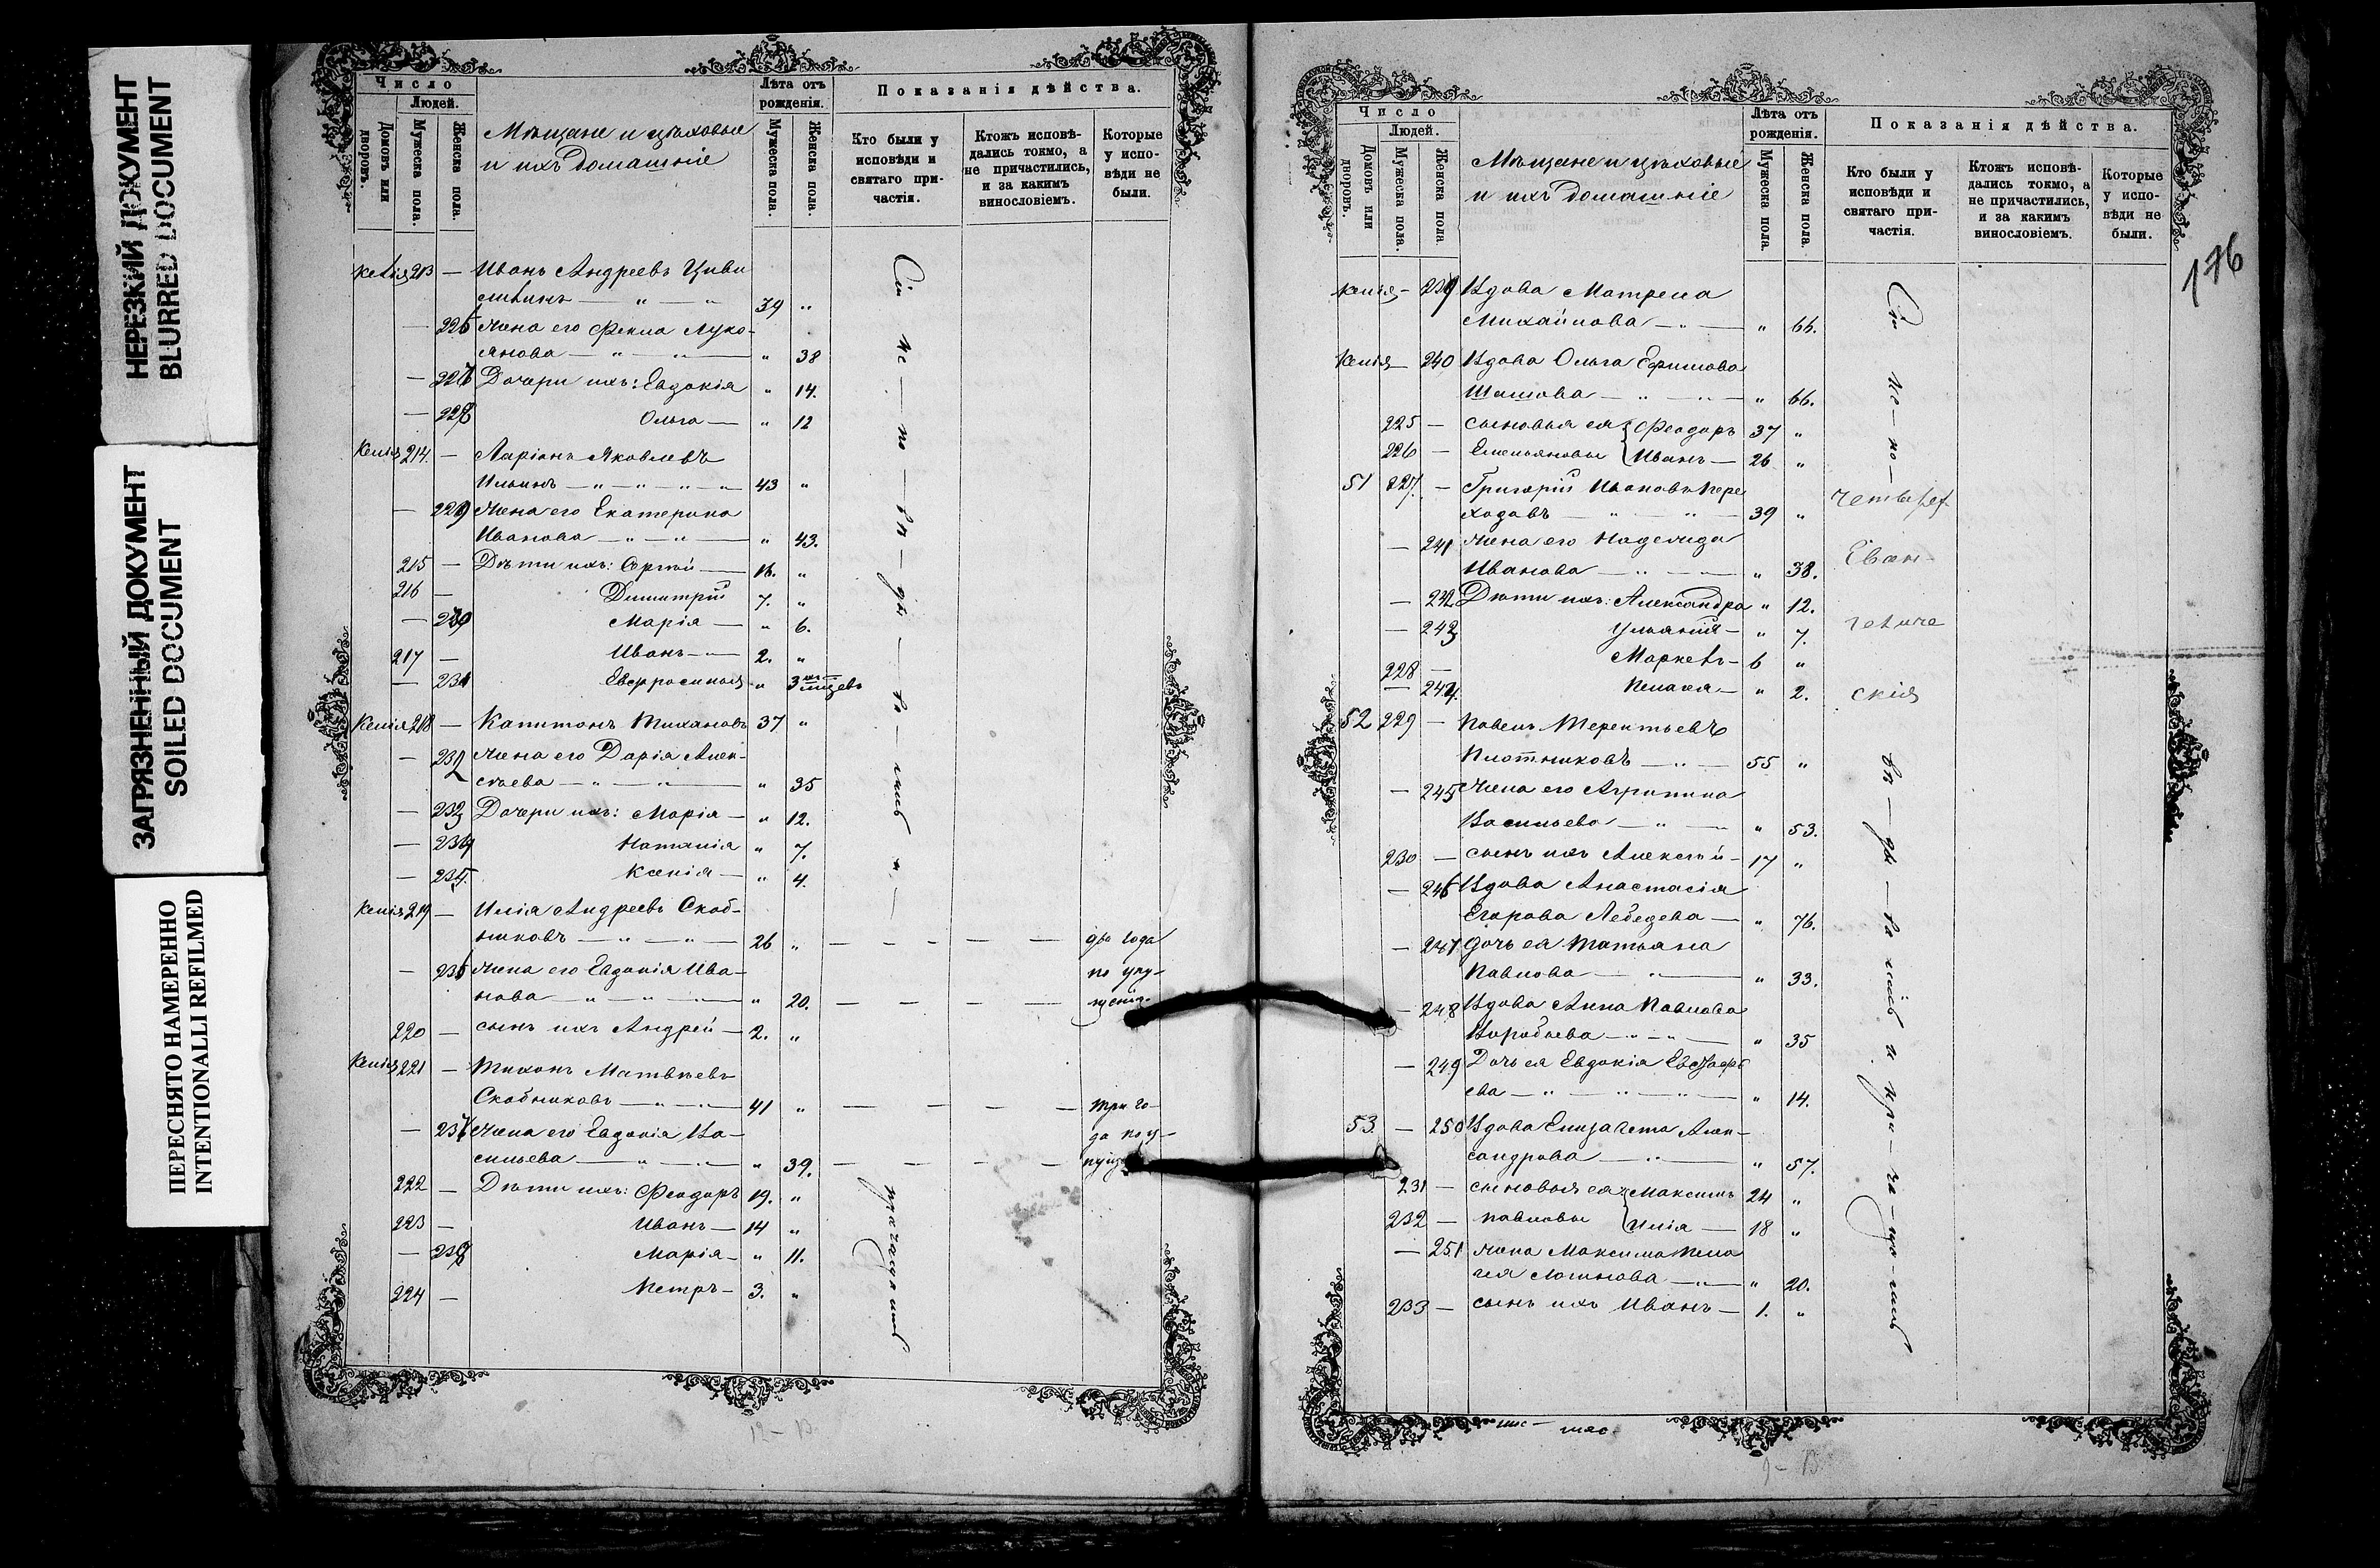 НЕРЕЗКИЙ ДОКУМЕНТ
BLURRED DOCUMENT
ЗАГРЯЗНЕННЫЙ ДОКУМЕНТ
SOILED DOCUMENT
ПЕРЕСНЯТО НАМЕРЕННО
INTENTIONALLI REFILMED
Число
Людей.
Домовъ или дворовъ.
Мужеска пола.
Женска пола.
Мѣщане и цѣховые
и ихъ домашніе
Лѣта отъ рожденія.
Мужеска пола.
Женска пола.
Показанія дѣйства.
Кто были у исповѣди и святаго причастія.
Ктожъ исповѣдались токмо, а не причастились, и за какимъ винословіемъ.
Которые у исповѣди не были.
Келія 213 — Иванъ Андреевъ
39 "
— 225 Жена его Фекла Луко-
янова — " — " — " 38
— Дочери ихъ: Евдокія " 14.
— Ольга — " 12
Келія 214. — Ларіонъ Яковлевъ
Ильинъ — " — " — " — " 43 "
— Жена его Екатерина
Иванова — " — " — " 43.
215 — Дѣти ихъ: Сергѣй — 16. "
216 — Димитрій 7. "
— Марія — " 6.
217 — Иванъ — 2. "
— 231 Евфросинія " 3 мѣсяцевъ
Келія 218 — Капитонъ Тихановъ 37 "
— 232 Жена его Дарія Алек-
сѣева — " — " — " 35
— 233 Дочери ихъ: Марія — " 12.
— 234 Наталія " 7.
— 235. Ксенія — " 4.
Келія 219 — Илія Андреевъ Скоб-
никовъ — " — " — 26 " — — — — — два года
— 236 Жена его Евдокія Ива- по упу-
нова — " — " — " — " 20. — — — — щенію
220 — сынъ ихъ Андрей — 2. "
Келія 221 — Тихонъ Матвѣевъ
Скобниковъ — " — " — 41 " — — — — — три го-
— 237 Жена его Евдокія Ва- да по у-
сильева — " — " — " 39. — — — —
222 — Дѣти ихъ: Феодоръ 19. "
223 — Иванъ — 14 "
— 238 Марія — " 11.
224 — Петръ — 3. "
Сіи ис — по — вѣ — да — ва — лись и — причащались
12 — 13
Число
Людей.
Домовъ или дворовъ.
Мужеска пола.
Женска пола
Мѣщане и цѣховые
и ихъ домашніе
Лѣта отъ рожденія.
Мужеска пола.
Женска пола.
Показанія дѣйства.
Кто были у исповѣди и святаго причастія.
Ктожъ исповѣдались токмо, а не причастились, и за какимъ винословіемъ.
Которые у исповѣди не были.
176
Келія — 239 Вдова Матрена
Михайлова — " — " 66.
Келія — 240 Вдова Ольга Ефимова
Шашова — " — " — " 66.
225 — сыновья ея Феодоръ 37 "
226 — Емельяновы Иванъ — 26 "
51 227. — Григорій Ивановъ Пере
ходовъ — " — " — 39 "
— 241 Жена его Надежда
Иванова — " — " — " 38.
— 242 Дѣти ихъ: Александра " 12.
— 243 Ульянія — " 7.
228 — Маркелъ — 6 "
— 244. Пелагея — " 2.
52 229 — Павелъ Терентьевъ
Плотниковъ — " — 55 "
— 245 Жена его Агрипина
Васильева — " — " 53.
230 — сынъ ихъ Алексѣй — 17 "
— 246 Вдова Анастасія
Егорова Лебедева — " 76.
— 247. дочь ея Татьяна
Павлова — " — " 33.
— 248 Вдова Анна Павлова
Воробьева — " — " — " 35
— 249 Дочь ея Евдокія
ева — " — " — " — " 14.
53. — 250 Вдова Елизавета Алек-
сандрова — " — " 57.
231 — сыновья ея Максимъ 24 "
232 — Павловы Илія — 18 "
— 251 Жена Максима Пела
гея Логинова — " — " 20.
233 — сынъ ихъ Иванъ — 1. "
Сіи ис — по —
Еван-
геличе
скія
вѣ — да — ва лись и при — ча — ща — лись
9 — 13